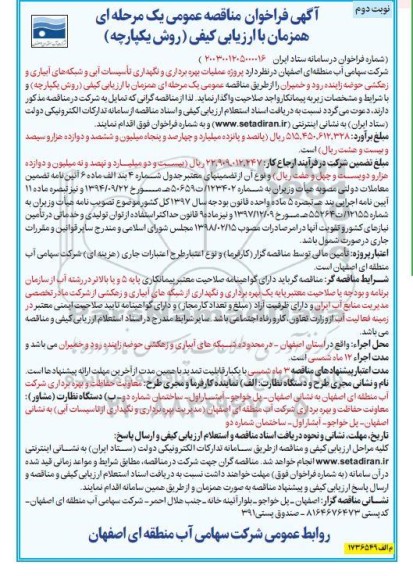 نوبت دوم
آگهی فراخوان مناقصه عمومی یک مرحله ای
همزمان با ارزیابی کیفی (روش یکپارچه)
(شماره فراخوان در سامانه ستاد ایران ۲۰۰۳۰۰۱۲۰۵۰۰۰۰۱۶)
شرکت سهامی آب منطقه‌ای اصفهان در نظر دارد پروژه عملیات بهره برداری و نگهداری تأسیسات آبی و شبکه‌های آبیاری و
زهکشی حوضه زاینده رود و خمیران را از طریق مناقصه عمومی یک مرحله ای همزمان با ارزیابی کیفی (روش یکپارچه) و
با شرایط و مشخصات زیر به پیمانکار واجد صلاحیت واگذار نماید. لذا از مناقصه گرانی که تمایل به شرکت در مناقصه مذکور
دارند، دعوت می گردد نسبت به دریافت اسناد استعلام ارزیابی کیفی و اسناد مناقصه از سامانه تدارکات الکترونیکی دولت
(ستاد ایران) به نشانی اینترنتی (www.setadiran.ir) و به شماره فراخوان فوق اقدام نمایند.
مبلغ برآورد: ۵۱۵،۴۵۰،۶۱۲،۳۲۸ ریال (پانصد و پانزده میلیارد و چهارصد و پنجاه میلیون و ششصد و دوازده هزار و سیصد
و بیست و هشت ریال) است.
مبلغ تضمین شرکت در فرآیند ارجاع کار: ۲۲،۹۰۹،۰۱۲،۲۴۷ ریال (بیست و دو میلیارد و نهصد و نه میلیون و دوازده
هزار و دویست و چهل و هفت ریال) و نوع آن از تضمینهای معتبر جدول شماره ۴ بند الف ماده ۶ آئین نامه تضمین
معاملات دولتی مصوبه هیأت وزیران به شماره ۱۲۳۴۰۲/ت۵۰۶۵۹هـ مورخ ۱۳۹۴/۰۹/۲۲ و نیز تبصره ماده ۱۱
آیین نامه اجرایی بند هـ تبصره ۵ ماده واحده قانون بودجه سال ۱۳۹۷ کل کشور موضوع تصویب نامه هیأت وزیران به
شماره ۱۲۱۵۵/ت۵۵۲۶۴هـ مورخ ۱۳۹۷/۱۲/۰۹ و نیز ماده ۹ قانون حداکثر استفاده از توان تولیدی و خدماتی در تأمین
نیازهای کشور و تقویت آنها در امر صادرات مصوب ۱۳۹۸/۰۲/۱۵ مجلس شورای اسلامی و مندرج سایر قوانین و مقررات
جاری در صورت شمول باشد.
اعتبار پروژه: تأمین مالی توسط مناقصه گزار (کارفرما) و نوع اعتبار طرح اعتبارات جاری (هزینه ای) شرکت سهامی آب
منطقه ای اصفهان است.
شرایط مناقصه گر: مناقصه گر باید دارای گواهینامه صلاحیت معتبر پیمانکاری پایه ۵ و یا بالاتر در رشته آب از سازمان
برنامه و بودجه یا صلاحیت معتبر پایه یک بهره برداری و نگهداری از شبکه های آبیاری و زهکشی از شرکت مادر تخصصی
مدیریت منابع آب ایران و دارای ظرفیت آزاد (مبلغ و تعداد کار مجاز) و دارای گواهینامه تایید صلاحیت ایمنی معتبر در
زمینه فعالیت آب از وزارت تعاون، کار و رفاه اجتماعی باشد. سایر شرایط مندرج در اسناد استعلام ارزیابی کیفی و مناقصه
می باشد.
محل اجراء: واقع در استان اصفهان - در محدوده شبکه های آبیاری و زهکشی حوضه زاینده رود و خمیران می باشد و
مدت اجراء ۱۲ ماه شمسی است.
مدت اعتبار پیشنهادهای مناقصه ۳ ماه شمسی با یکبار قابلیت تمدید با همین مدت از آخرین مهلت ارائه پیشنهادها است.
نام و نشانی مجری طرح و دستگاه نظارت: الف) نماینده کارفرما و مجری طرح: معاونت حفاظت و بهره برداری شرکت
آب منطقه ای اصفهان به نشانی اصفهان- پل خواجو- آبشار اول- ساختمان شماره دو- ب) دستگاه نظارت (مشاور):
معاونت حفاظت و بهره برداری شرکت آب منطقه ای اصفهان (مدیریت بهره برداری و نگهداری از تاسیسات آبی) به نشانی
اصفهان- پل خواجو- آبشار اول- ساختمان شماره دو
تاریخ، مهلت، نشانی و نحوه دریافت اسناد مناقصه و استعلام ارزیابی کیفی و ارسال پاسخ:
کلیه مراحل ارزیابی کیفی و مناقصه از طریق سامانه تدارکات الکترونیکی دولت (ستاد ایران) به نشانی اینترنتی
www.setadiran.ir انجام خواهد شد. مناقصه گران جهت شرکت در مناقصه، مطابق شرایط و مواعد زمانی قید شده
در آن سامانه (به شماره فراخوان فوق) مهلت خواهند داشت نسبت به دریافت اسناد استعلام ارزیابی کیفی و مناقصه و
ارسال پاسخ ارزیابی کیفی و پیشنهاد مناقصه به صورت همزمان و از طریق همین سامانه اقدام نمایند.
نشانی مناقصه گزار: اصفهان- پل خواجو- بلوار آئینه خانه- جنب هلال احمر- شرکت سهامی آب منطقه ای اصفهان-
کدپستی ۸۱۶۴۶۷۶۴۷۳- صندوق پستی ۳۹۱
روابط عمومی شرکت سهامی آب منطقه ای اصفهان
م الف ۱۷۳۶۵۴۹